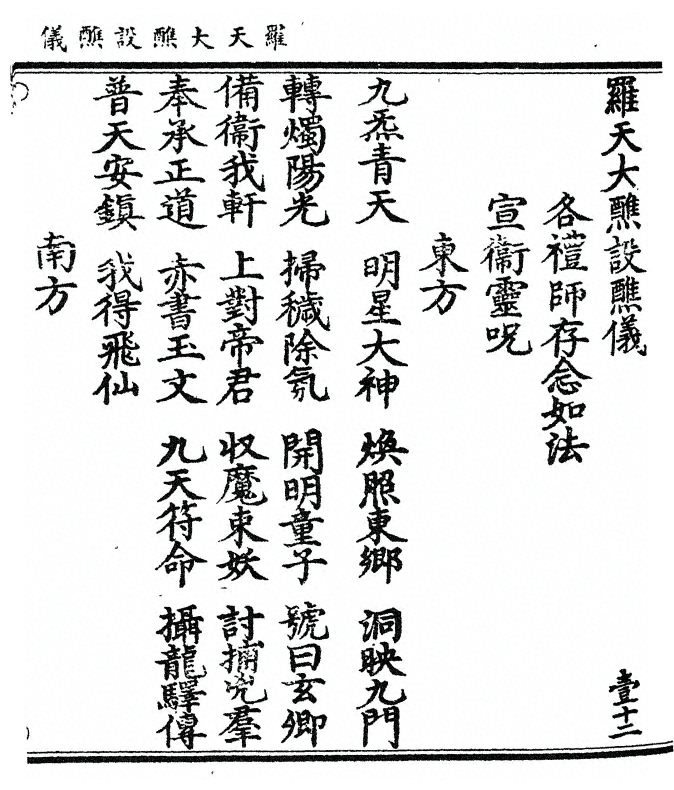 羅天大醮設醮儀
羅天大醮設醮儀 壹十二
各禮師存念如法
宣衛靈呪
東方
九炁青天 明星大神 煥照東鄉 洞映九門
轉燭陽光 掃穢除氛 開明童子 號曰玄卿
備衛我軒 上對帝君 収魔束妖 討捕兇羣
奉承正道 赤書玉文 九天符命 攝龍驛傳
普天安鎮 我得飛仙
南方